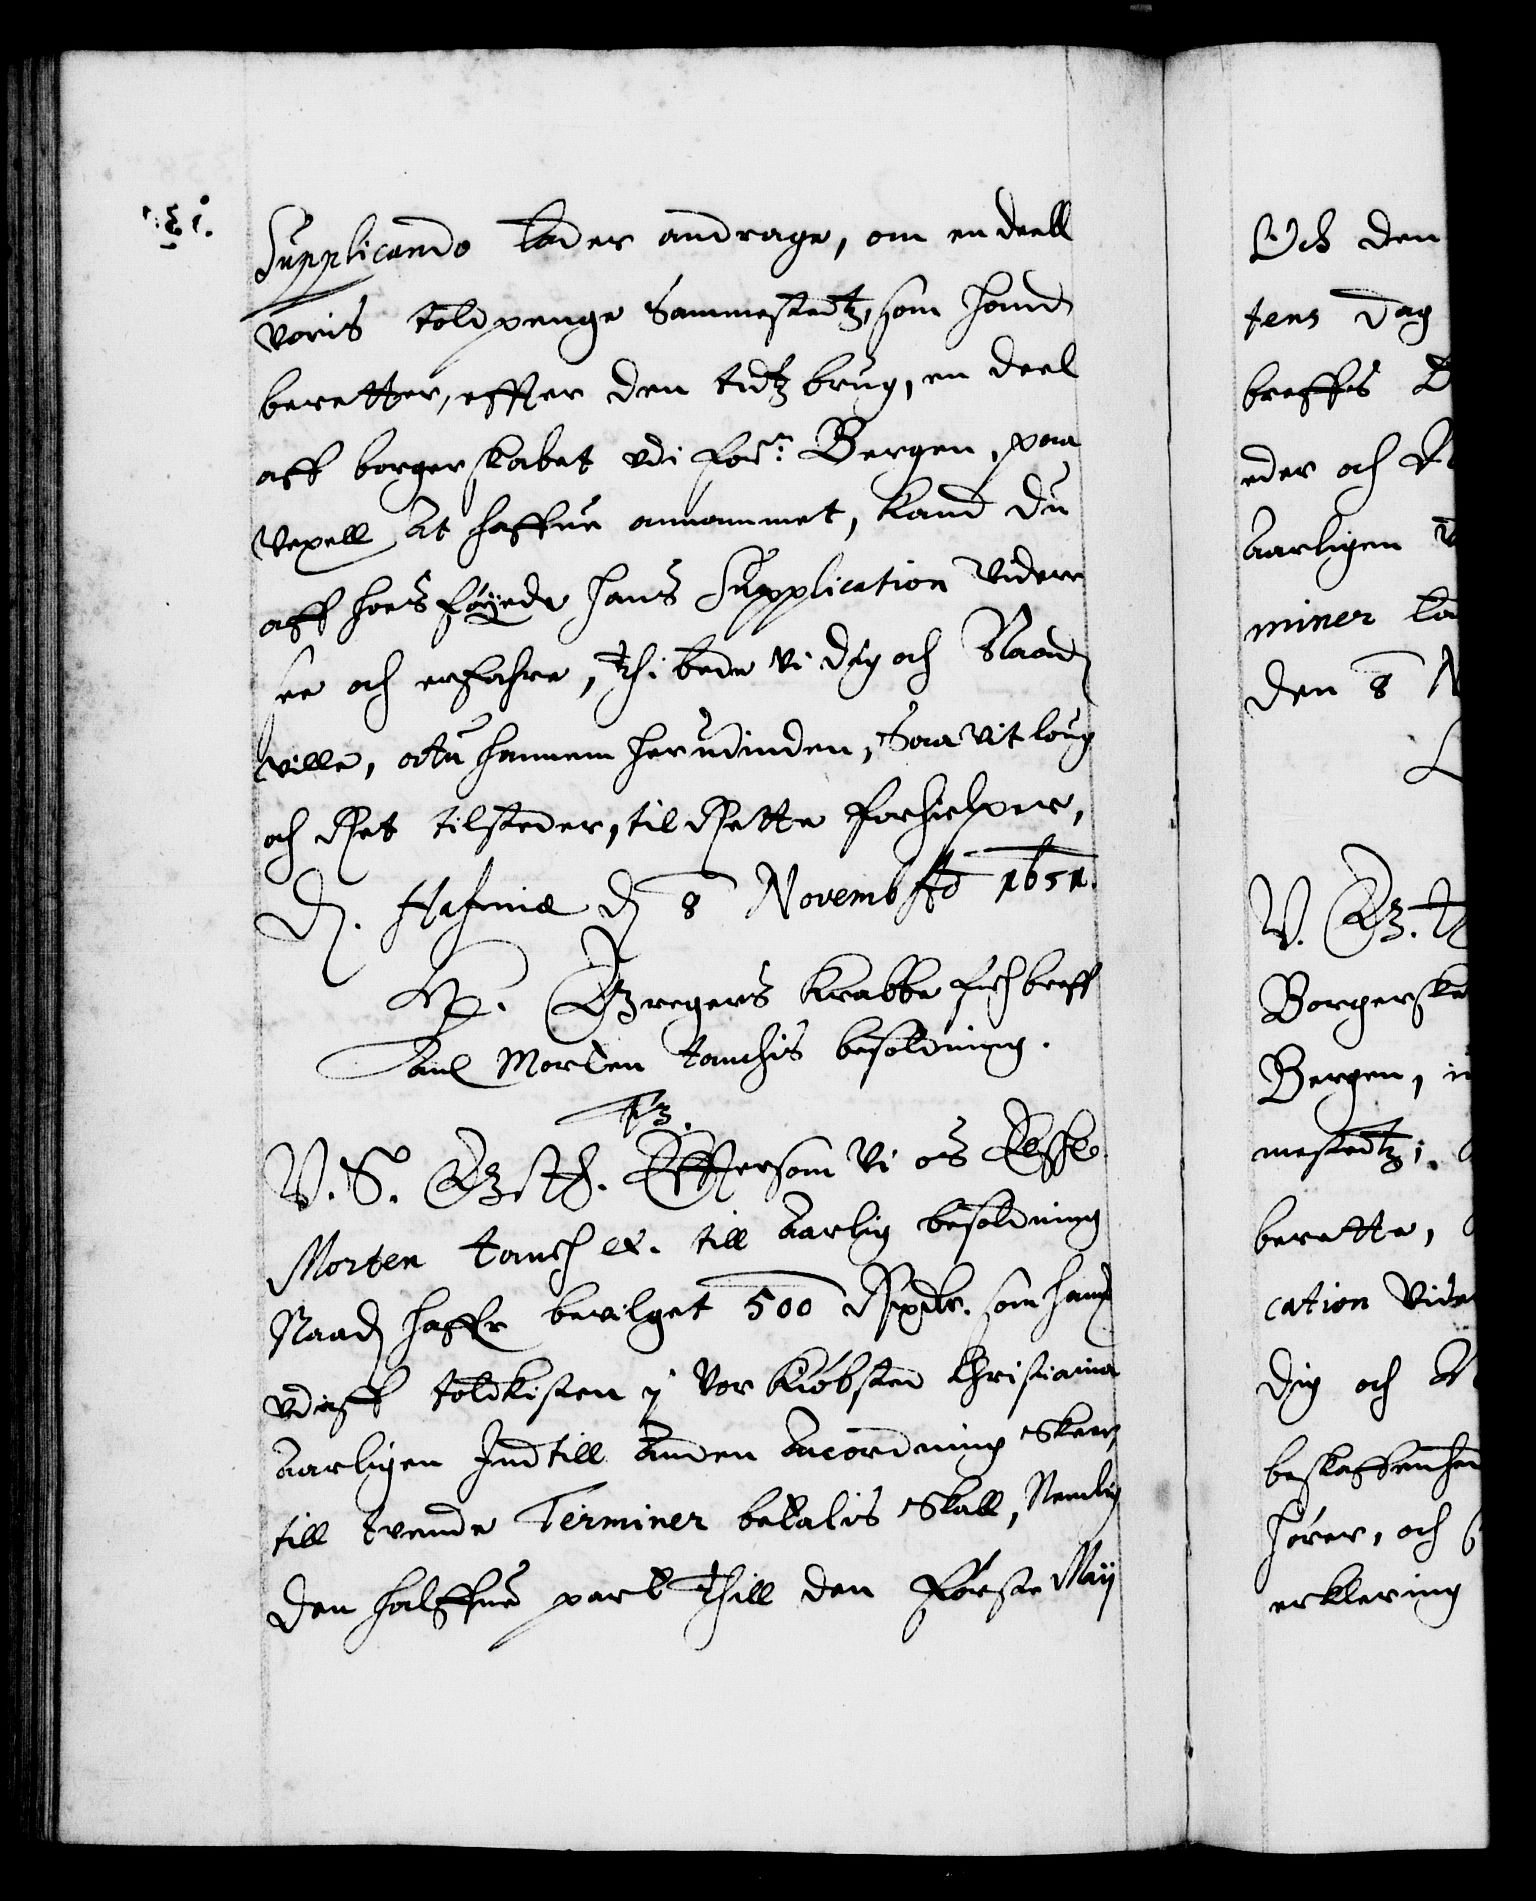 Supplicando lader andrage, om en deell
voris toldpenge sammestedtz, som hand
beretter, effter den tidtz brug, en deel
aff borgerskabet udi for: Bergen, paa
Vexell at haffue annammet, kand du
aff hoes føyede hans Supplication videre
see och erfahre, Thi bede Vi dig och Naad
ville, attu hannem herudinden, Saavit loug
och Ret tilsteder, til Rette forhielper,
D. Hafniæ d 8 Novemb A&ordm; 1651.
Gregers Krabbe fich breff
anl Morten Tauchis besoldning.
F3.
V. S. G. Th. Effter som Vi os Elskel
Morten Tauch etc. till Aarlig besoldning
Naad haffr bevilget 500 Rixdlr. som hand
udaff toldkisten y Vor Kiøbsted Christiania
Aarligen Indtill anden Anordning skeer,
till tvende Terminer betalis skall, Nemlig
den halffue part Thill den første Maij
Och den
tens dag
breffs
eder och
Aarligen
miner
den 8
V. G.
Borgerska
Bergen,
mestedtz,
berette,
cation vide
dig och
beskaffenhed
hører, och
erklering